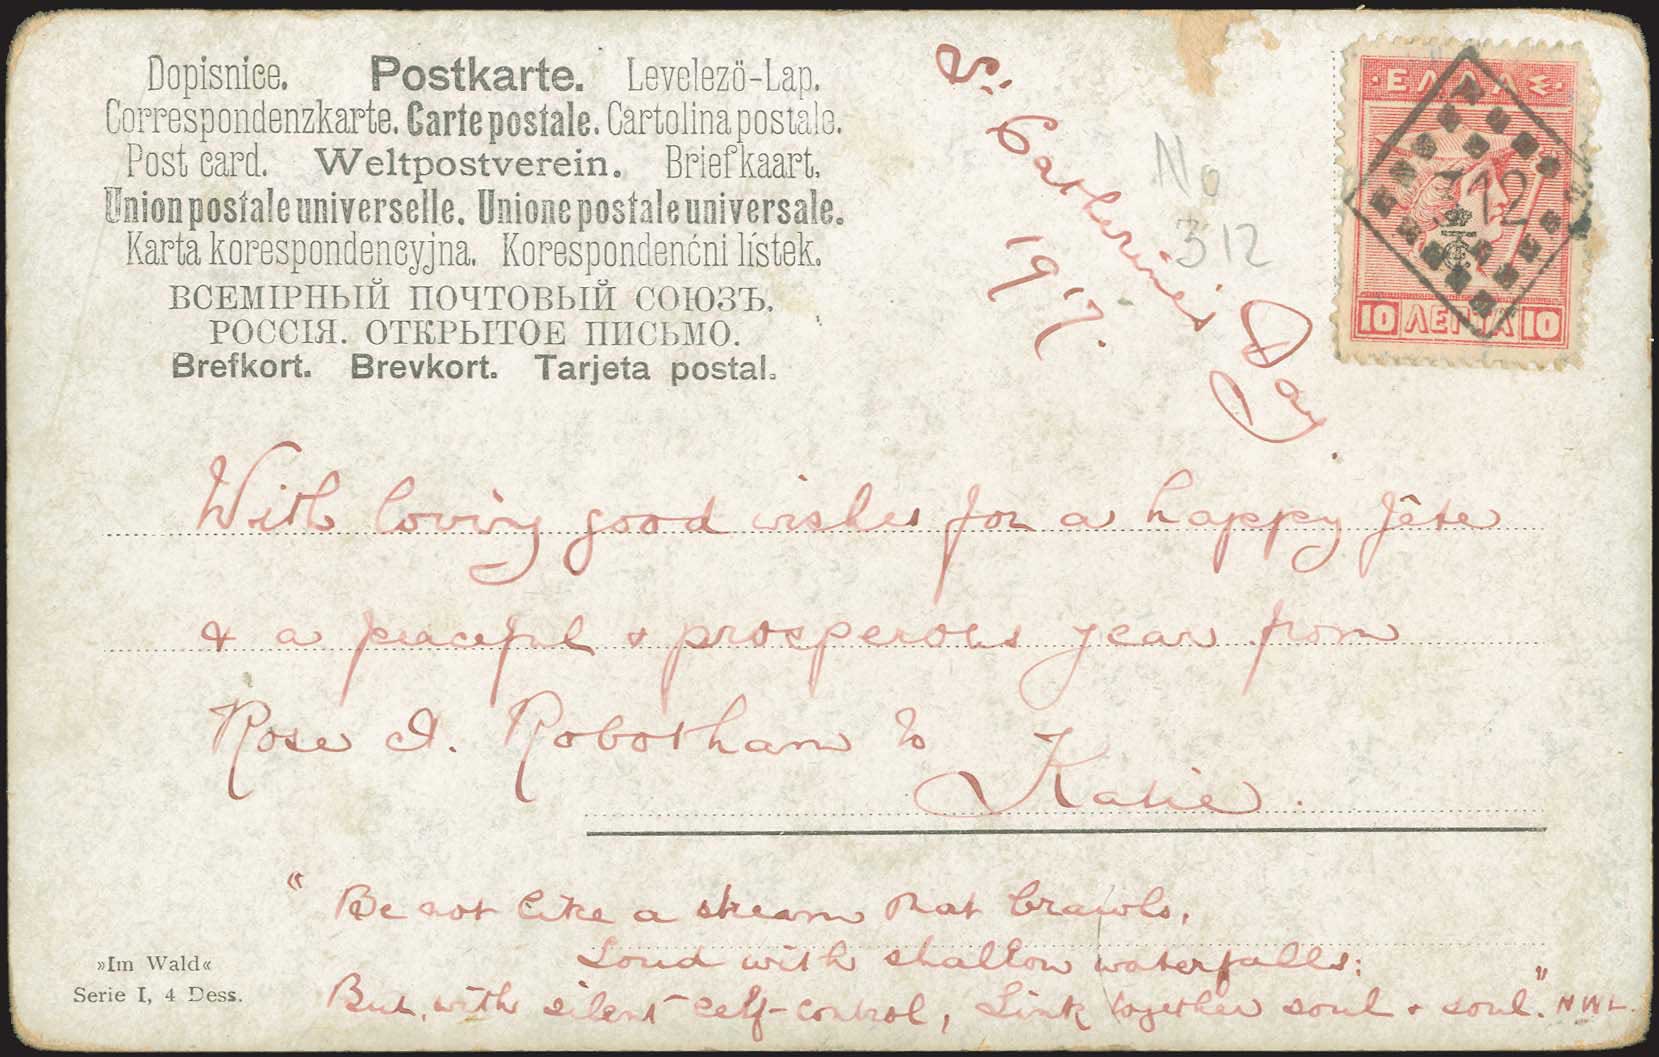 Dopisnice. Postkarte. Levelező-Lap.
Correspondenzkarte. Carte postale. Cartolina postale.
Post card. Weltpostverein. Briefkaart.
Union postale universelle. Unione postale universale.
Karta korespondencyjna. Korespondenćni lístek.
ВСЕМІРНЫЙ ПОЧТОВЫЙ СОЮЗЪ.
РОССІЯ. ОТКРЫТОЕ ПИСЬМО.
Brefkort. Brevkort. Tarjeta postal.
St. Catherine's Day.
1917.
No
312
ΕΛΛΑΣ
312
10 ΛΕΠΤΑ 10
With loving good wishes for a happy fête
& a peaceful & prosperous year from
Rose A. Robotham to
Katie.
"Be not like a stream that brawls,
Loud with shallow waterfalls:
But, with silent self-control, Link together soul & soul." HWL.
»Im Wald«
Serie I, 4 Dess.